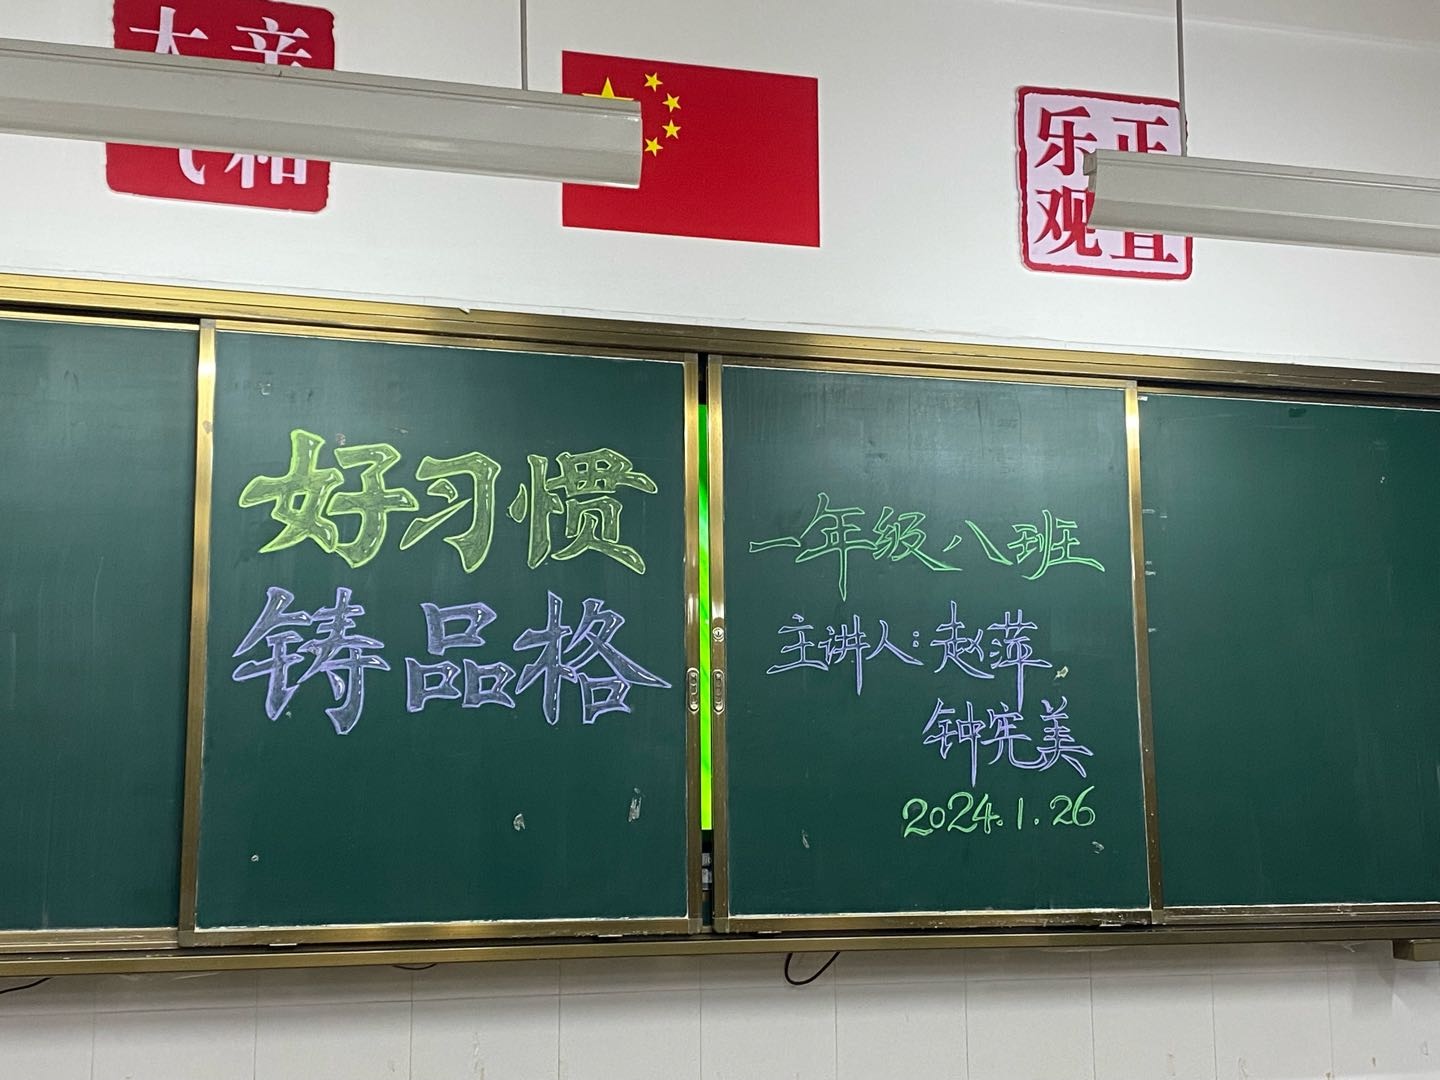 乐正
观直
好习惯
铸品格
一年级八班
主讲人:赵萍
钟宪美
2024.1.26